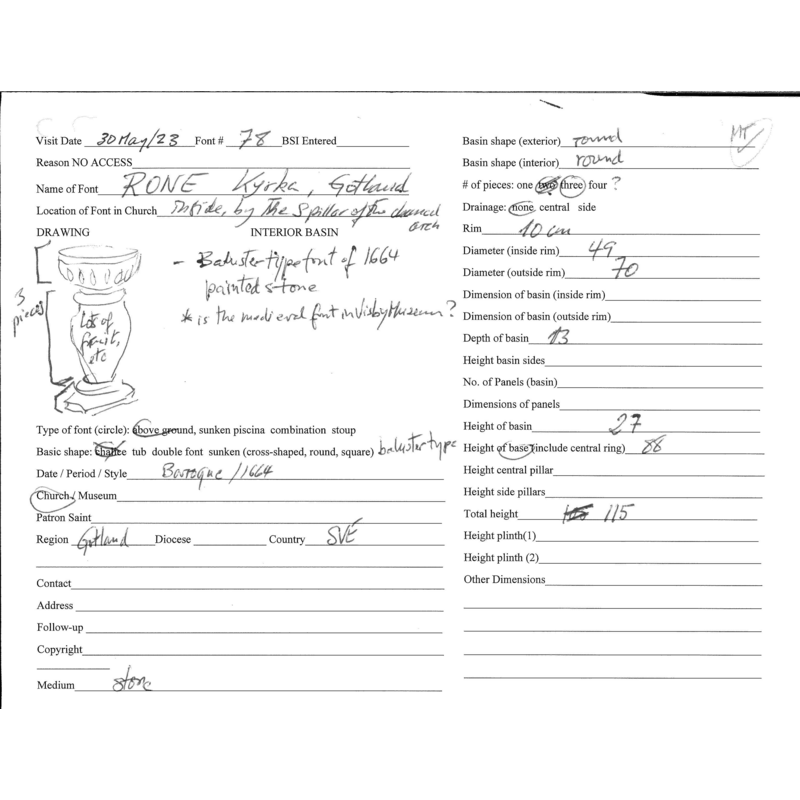 Visit Date 30 May/23 Font # 78 BSI Entered
Reason NO ACCESS
Name of Font RONE Kyrka, Gotland
Location of Font in Church inside, by the S pillar of the chancel arch
DRAWING INTERIOR BASIN
3 pieces
Lots of fruit, etc
- Baluster type font of 1664
painted stone
* is the medieval font in Visby Museum?
Type of font (circle): above ground, sunken piscina combination stoup
Basic shape: chalice tub double font sunken (cross-shaped, round, square) baluster type
Date / Period / Style Baroque / 1664
Church / Museum
Patron Saint
Region Gotland Diocese Country SVE
Contact
Address
Follow-up
Copyright
Medium stone
MT
Basin shape (exterior) round
Basin shape (interior) round
# of pieces: one two three four ?
Drainage: none central side
Rim 10 cm
Diameter (inside rim) 49
Diameter (outside rim) 70
Dimension of basin (inside rim)
Dimension of basin (outside rim)
Depth of basin 13
Height basin sides
No. of Panels (basin)
Dimensions of panels
Height of basin 27
Height of base (include central ring) 88
Height central pillar
Height side pillars
Total height 115
Height plinth(1)
Height plinth (2)
Other Dimensions